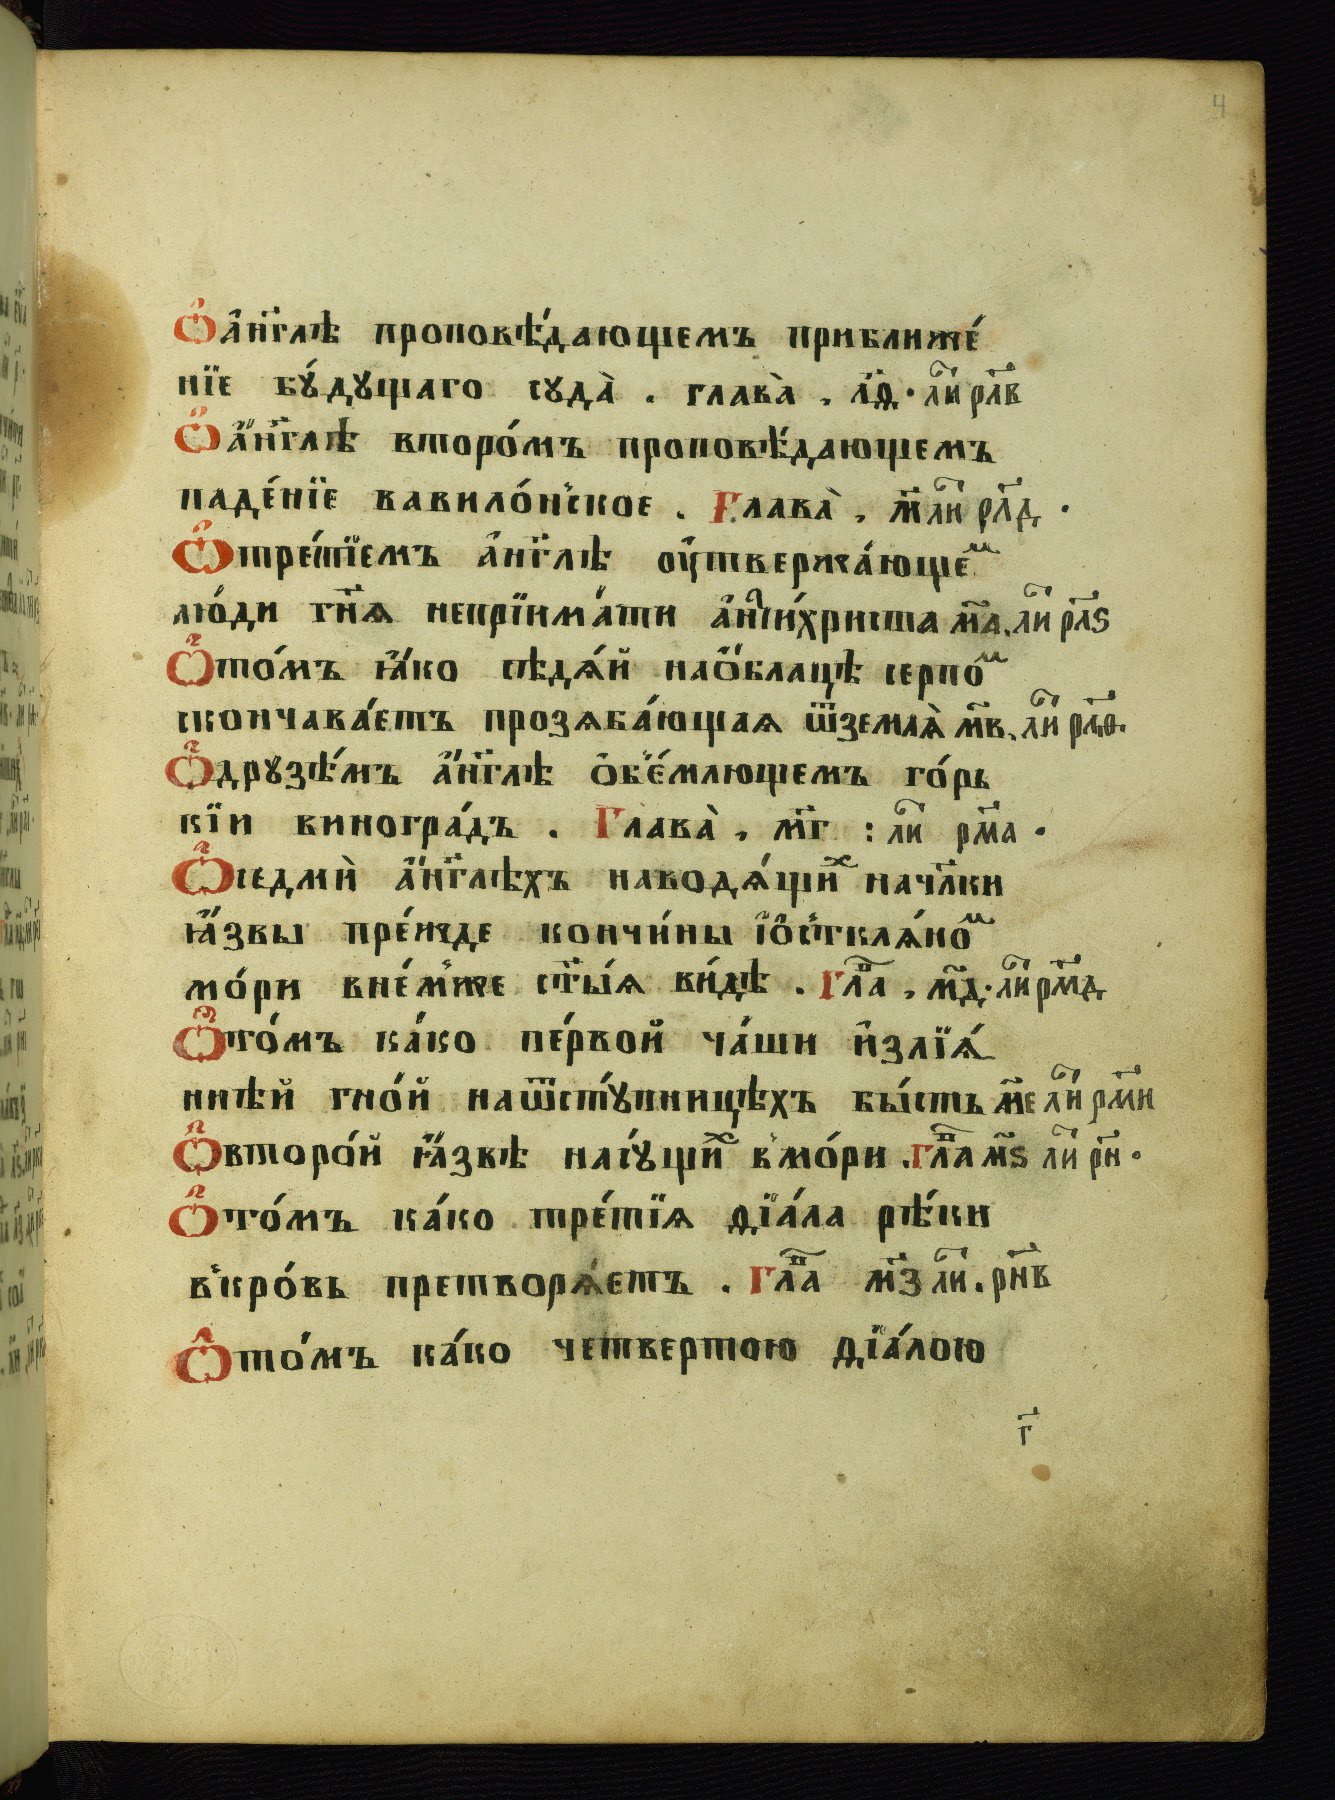 4
Ѽ а҆́нг҃лѣ проповѣ́дающемъ приближе́
нїе бꙋ́дꙋщаго сꙋда̀ . глава̀ , л҃ѳ · ли́ рл҃в
Ѽ а҆́нг҃лѣ второ́мъ проповѣ́дающемъ
паде́нїе вавило́нское . Глава̀ , м҃ ли́ рл҃д ·
Ѽ тре́тїемъ а҆́нг҃лѣ оу҆твержа́юще ⷨ
лю́ди гн҃я непрїима́ти а҆нти́христа м҃а . ли́ рл҃ѕ
Ѽ то́мъ ꙗ҆́ко сѣдѧ́й на ѻ҆́блацѣ серпо́ ⷨ
скончава́етъ прозѧба́ющая ѿ землѧ̀ м҃в . ли́ рл҃ѳ ·
Ѽ дрꙋзѣ́мъ а҆́нг҃лѣ ѻ҆б̾е́млющемъ го́рь
кїи виногра́дъ . Глава̀ , м҃г : ли́ рм҃а ·
Ѽ седмѝ а҆́нг҃лѣхъ наводѧ́щиⷯ нач҃лки
ꙗ҆́звы пре́жде кончи́ны і҆ ѻ҆ стклѧ́но ⷨ
мо́ри в не́мже ст҃ы́ѧ ви́дѣ . Гл҃а , м҃д · ли́ рм҃д
Ѽ то́мъ ка́ко пе́рвой ча́ши и҆злїѧ́
ннѣй гно́й на ѿстꙋ́пницѣхъ бы́сть м҃е ли́ рм҃и
Ѽ второ́й ꙗ҆́звѣ на сꙋ́щиⷯ в̾ мо́ри . гл҃а м҃ѕ ли́ рн҃ ·
Ѽ то́мъ ка́ко тре́тїѧ дїа́ла рѣ́ки
в̾ кро́вь претворѧ́етъ . Гл҃а м҃з ли́ . рн҃в
Ѽ то́мъ ка́ко четвертою дїа́лою
г҃